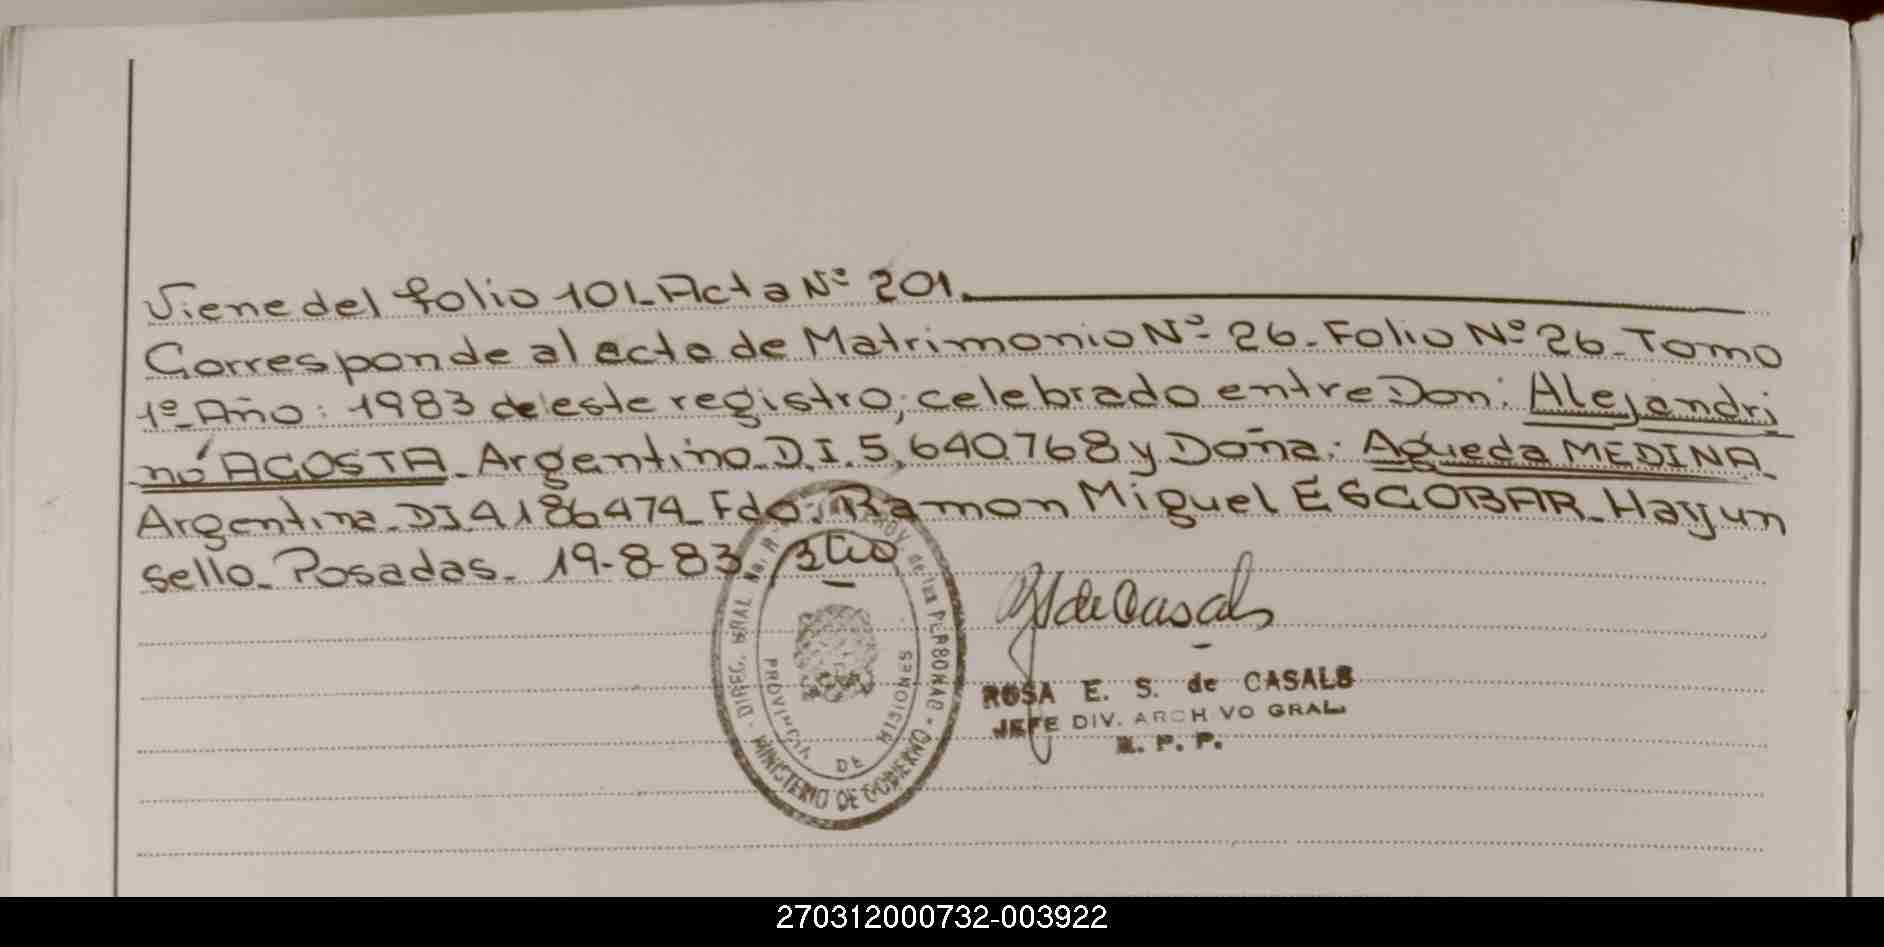 Viene del folio 101_Acta Nº 201.
Corresponde al acta de Matrimonio Nº 26_Folio Nº 26_Tomo
1º_Año: 1983 de este registro, celebrado entre Don: Alejandri
no AGOSTA_Argentino_D.I. 5,640.768 y Doña: Agueda MEDINA_
Argentina_DI 4186474_Fdo: Ramon Miguel ESCOBAR_Hay un
sello_Posadas_ 19-8-83.
DIREC. GRAL. PROV. de las PERSONAS
PROVINCIA DE MISIONES
MINISTERIO DE GOBIERNO
de Casals
ROSA E. S. de CASALS
JEFE DIV. ARCHIVO GRAL
R. P. P.
270312000732-003922